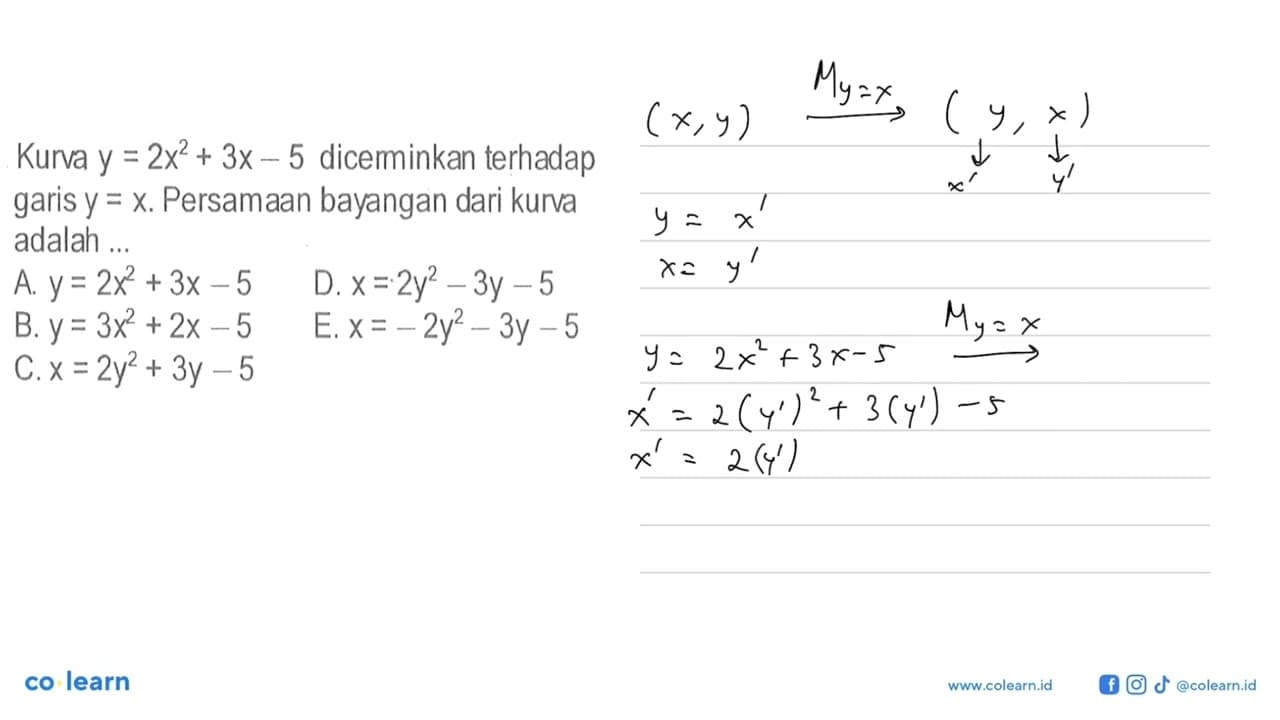 Kurva y = 2x² + 3x – 5 dicerminkan terhadap
garis y = x. Persamaan bayangan dari kurva
adalah ...
A. y = 2x² + 3x – 5 D. x = 2y² – 3y – 5
B. y = 3x² + 2x – 5 E. x = – 2y² – 3y – 5
C. x = 2y² + 3y – 5
(x, y) My=x (y, x)
x' y'
y = x'
x = y'
My=x
y = 2x² + 3x - 5
x' = 2(y')² + 3(y') - 5
x' = 2(y')
co learn
www.colearn.id @colearn.id